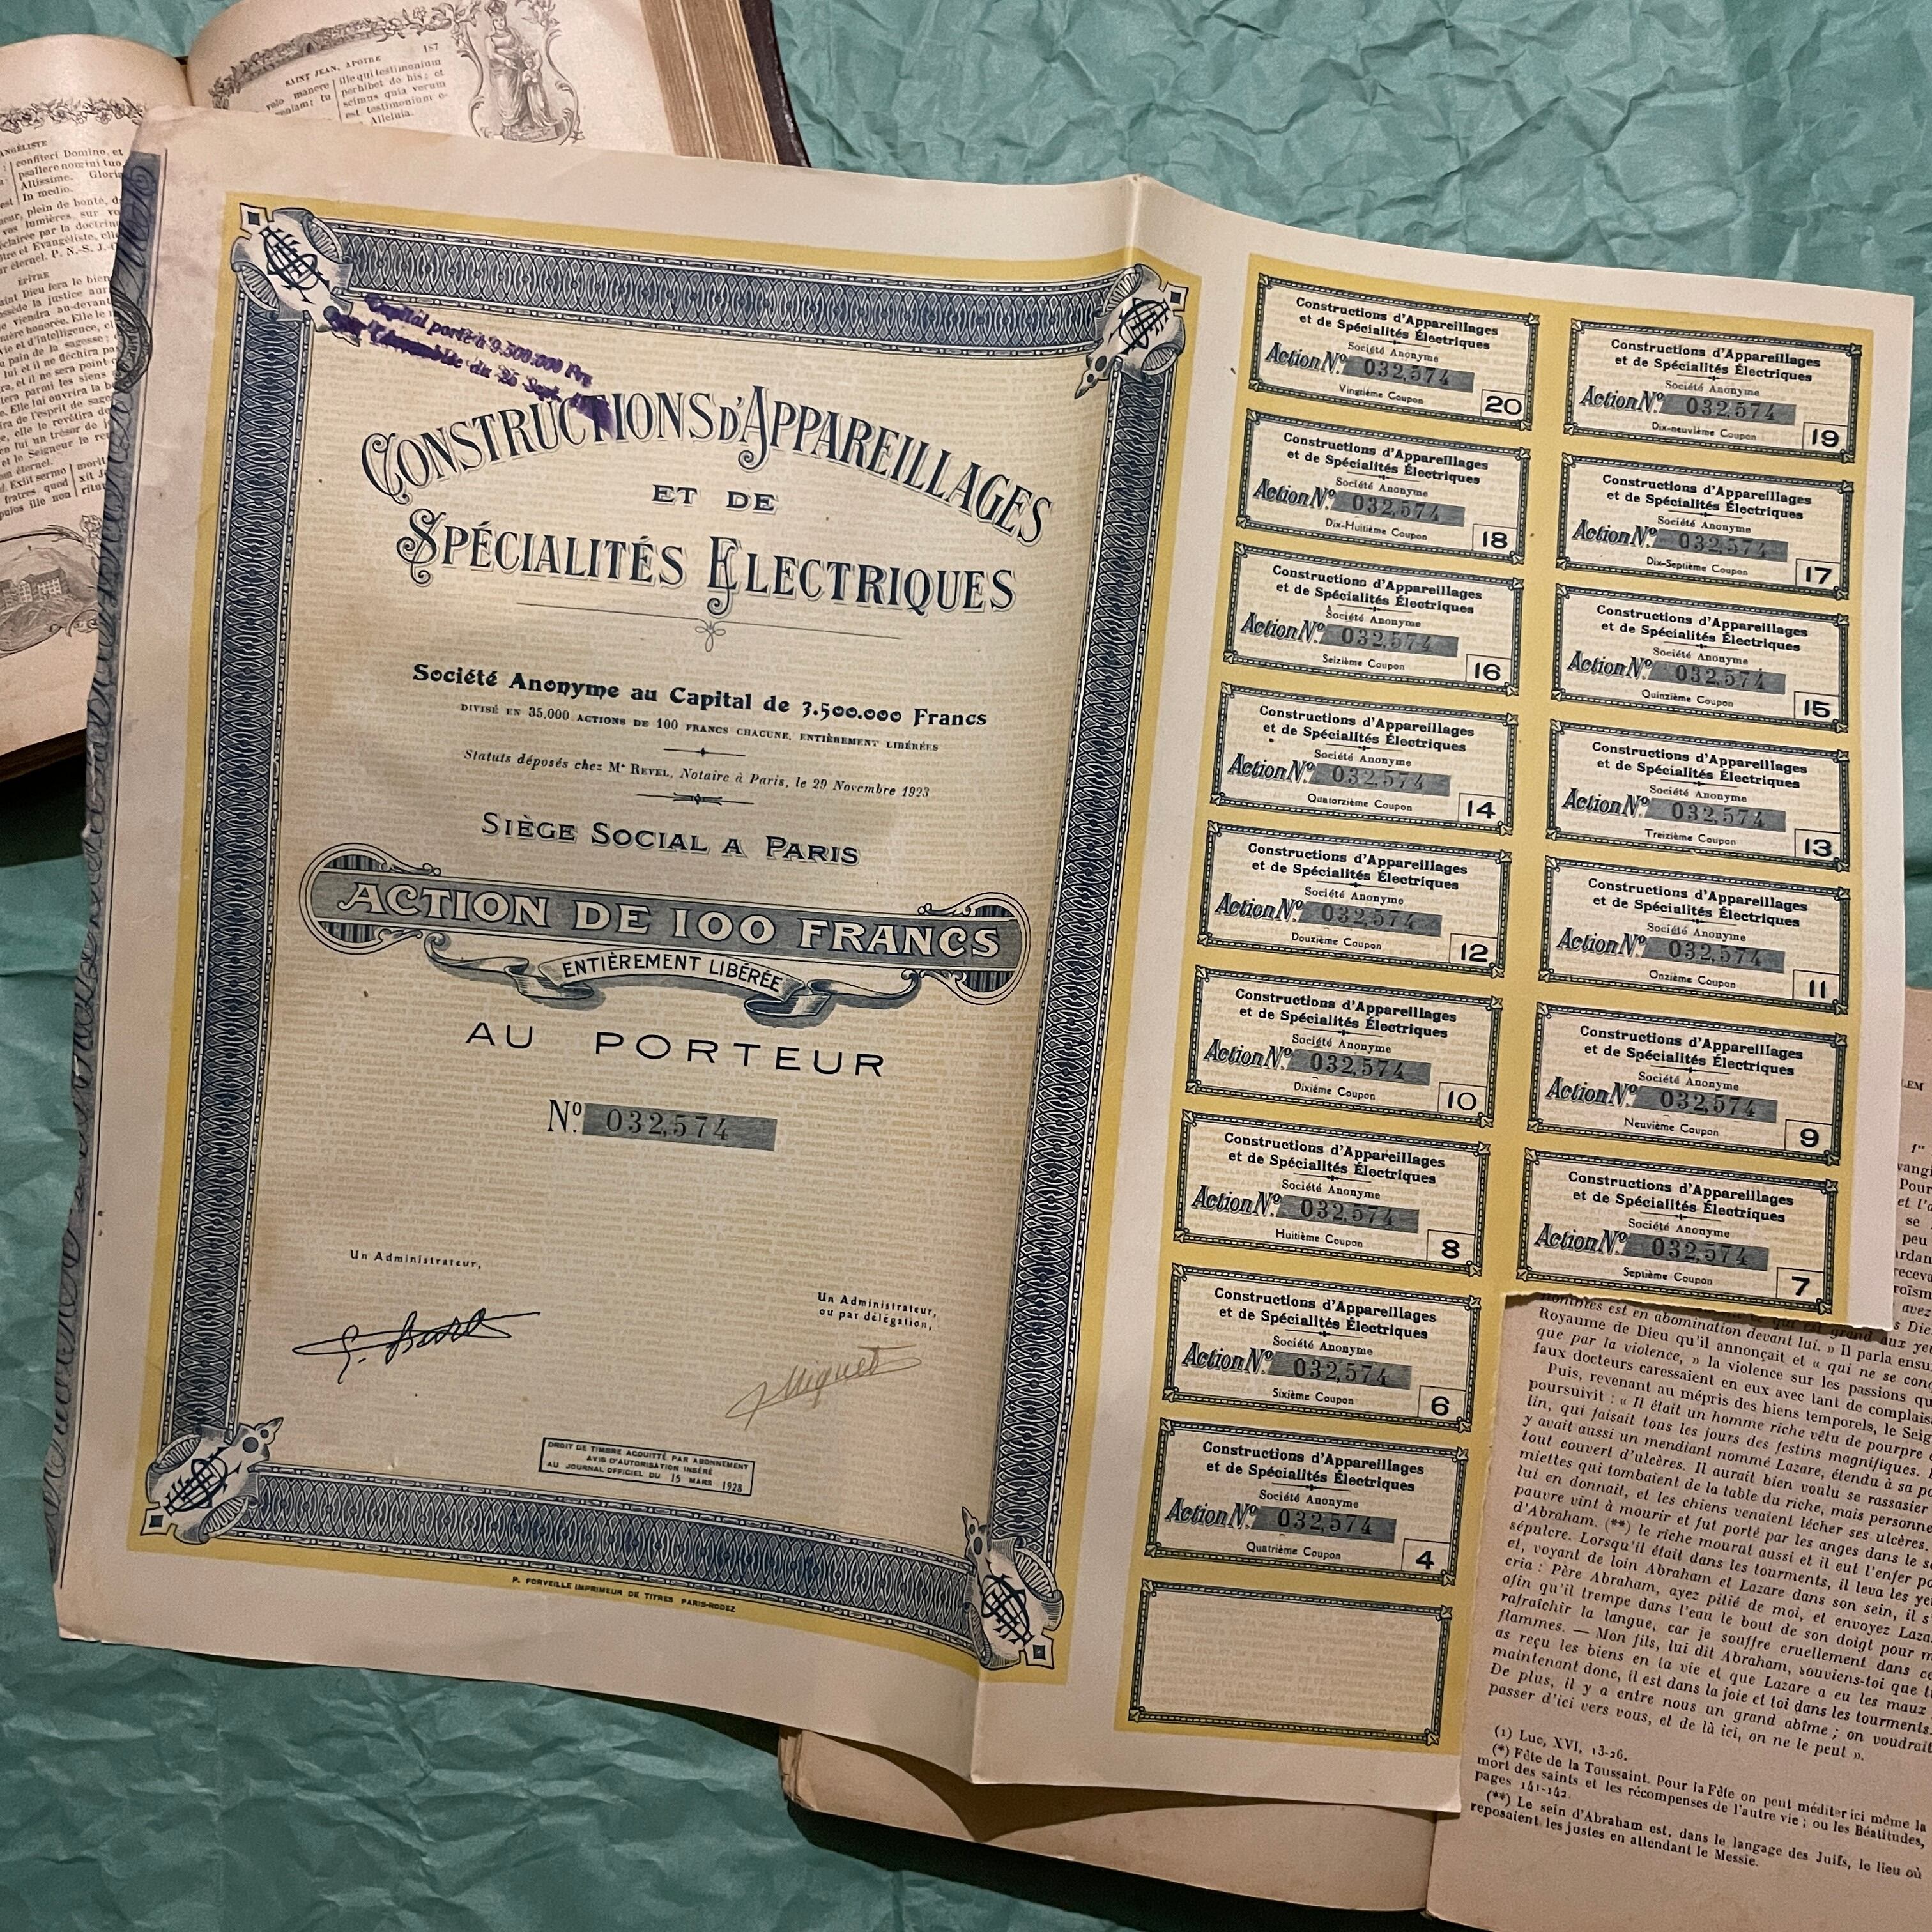 187
SAINT JEAN, APOTRE
volo manere
ille qui testimonium
perhibet de his; et
scimus quia verum
est testimonium e-
Alleluia.
confiteri Domino, et
psallere nomini tuo
Altissime. Gloria
In medio.
plein de bonté,
vos lumières sur
par la doctrine
et Evangéliste,
éternel. P. N.-S. J.-
EPÎTRE
Dieu fera le bien
la justice
viendra au-devant
honorée. Elle le
et d'intelligence,
pain de la sagesse;
lui et il ne fléchira
et il ne sera point
parmi les siens
Elle lui ouvrira la
de l'esprit de
elle le revêtira
lui un trésor de
et le Seigneur le
éternel.
Exiit sermo
fratres quod
ille non
Capital porté à 9.500.000 Frs
du 26 Sept.
CONSTRUCTIONS D'APPAREILLAGES
ET DE
SPÉCIALITÉS ELECTRIQUES
Société Anonyme au Capital de 3.500.000 Francs
DIVISÉ EN 35.000 ACTIONS DE 100 FRANCS CHACUNE, ENTIÈREMENT LIBÉRÉES
Statuts déposés chez Me REVEL, Notaire à Paris, le 29 Novembre 1923
SIÈGE SOCIAL A PARIS
ACTION DE 100 FRANCS
ENTIÈREMENT LIBÉRÉE
AU PORTEUR
No. 032,574
Un Administrateur,
Un Administrateur,
ou par délégation,
Miquet
DROIT DE TIMBRE ACQUITTÉ PAR ABONNEMENT
AVIS D'AUTORISATION INSÉRÉ
AU JOURNAL OFFICIEL DU 15 MARS 1928
P. FORVEILLE IMPRIMEUR DE TITRES PARIS-RODEZ
Constructions d'Appareillages
et de Spécialités Électriques
Société Anonyme
Action No. 032,574
Vingtième Coupon
20
Constructions d'Appareillages
et de Spécialités Électriques
Société Anonyme
Action No. 032,574
Dix-neuvième Coupon
19
Constructions d'Appareillages
et de Spécialités Électriques
Société Anonyme
Action No. 032,574
Dix-Huitième Coupon
18
Constructions d'Appareillages
et de Spécialités Électriques
Société Anonyme
Action No. 032,574
Dix-Septième Coupon
17
Constructions d'Appareillages
et de Spécialités Électriques
Société Anonyme
Action No. 032,574
Seizième Coupon
16
Constructions d'Appareillages
et de Spécialités Électriques
Société Anonyme
Action No. 032,574
Quinzième Coupon
15
Constructions d'Appareillages
et de Spécialités Électriques
Société Anonyme
Action No. 032,574
Quatorzième Coupon
14
Constructions d'Appareillages
et de Spécialités Électriques
Société Anonyme
Action No. 032,574
Treizième Coupon
13
Constructions d'Appareillages
et de Spécialités Électriques
Société Anonyme
Action No. 032,574
Douzième Coupon
12
Constructions d'Appareillages
et de Spécialités Électriques
Société Anonyme
Action No. 032,574
Onzième Coupon
11
Constructions d'Appareillages
et de Spécialités Électriques
Société Anonyme
Action No. 032,574
Dixième Coupon
10
Constructions d'Appareillages
et de Spécialités Électriques
Société Anonyme
Action No. 032,574
Neuvième Coupon
9
Constructions d'Appareillages
et de Spécialités Électriques
Société Anonyme
Action No. 032,574
Huitième Coupon
8
Constructions d'Appareillages
et de Spécialités Électriques
Société Anonyme
Action No. 032,574
Septième Coupon
7
Constructions d'Appareillages
et de Spécialités Électriques
Société Anonyme
Action No. 032,574
Sixième Coupon
6
Constructions d'Appareillages
et de Spécialités Électriques
Société Anonyme
Action No. 032,574
Quatrième Coupon
4
Pour
et
se
peu
avez
hommes est en abomination devant lui. » Il parla ensu
Royaume de Dieu qu'il annonçait et « qui ne se
que par la violence, » la violence sur les passions
faux docteurs caressaient en eux avec tant de
Puis, revenant au mépris des biens temporels, le
poursuivit : « Il était un homme riche vêtu de pourpre
lin, qui faisait tous les jours des festins magnifiques.
y avait aussi un mendiant nommé Lazare, étendu à sa
tout couvert d'ulcères. Il aurait bien voulu se rassasier
miettes qui tombaient de la table du riche, mais personne
lui en donnait, et les chiens venaient lécher ses ulcères.
pauvre vint à mourir et fut porté par les anges dans le
d'Abraham. (**) le riche mourut aussi et il eut l'enfer
sépulcre. Lorsqu'il était dans les tourments, il leva les
et, voyant de loin Abraham et Lazare dans son sein, il
cria : Père Abraham, ayez pitié de moi, et envoyez
afin qu'il trempe dans l'eau le bout de son doigt pour
rafraîchir la langue, car je souffre cruellement dans
flammes. — Mon fils, lui dit Abraham, souviens-toi que
as reçu les biens en ta vie et que Lazare a eu les maux
maintenant donc, il est dans la joie et toi dans les tourments.
De plus, il y a entre nous un grand abîme ; on voudrait
passer d'ici vers vous, et de là ici, on ne le peut ».
(1) Luc, XVI, 13-26.
(*) Fête de la Toussaint. Pour la Fête on peut méditer ici même la
mort des saints et les récompenses de l'autre vie ; ou les Béatitudes,
pages 141-142.
(**) Le sein d'Abraham est, dans le langage des Juifs, le lieu où
reposaient les justes en attendant le Messie.